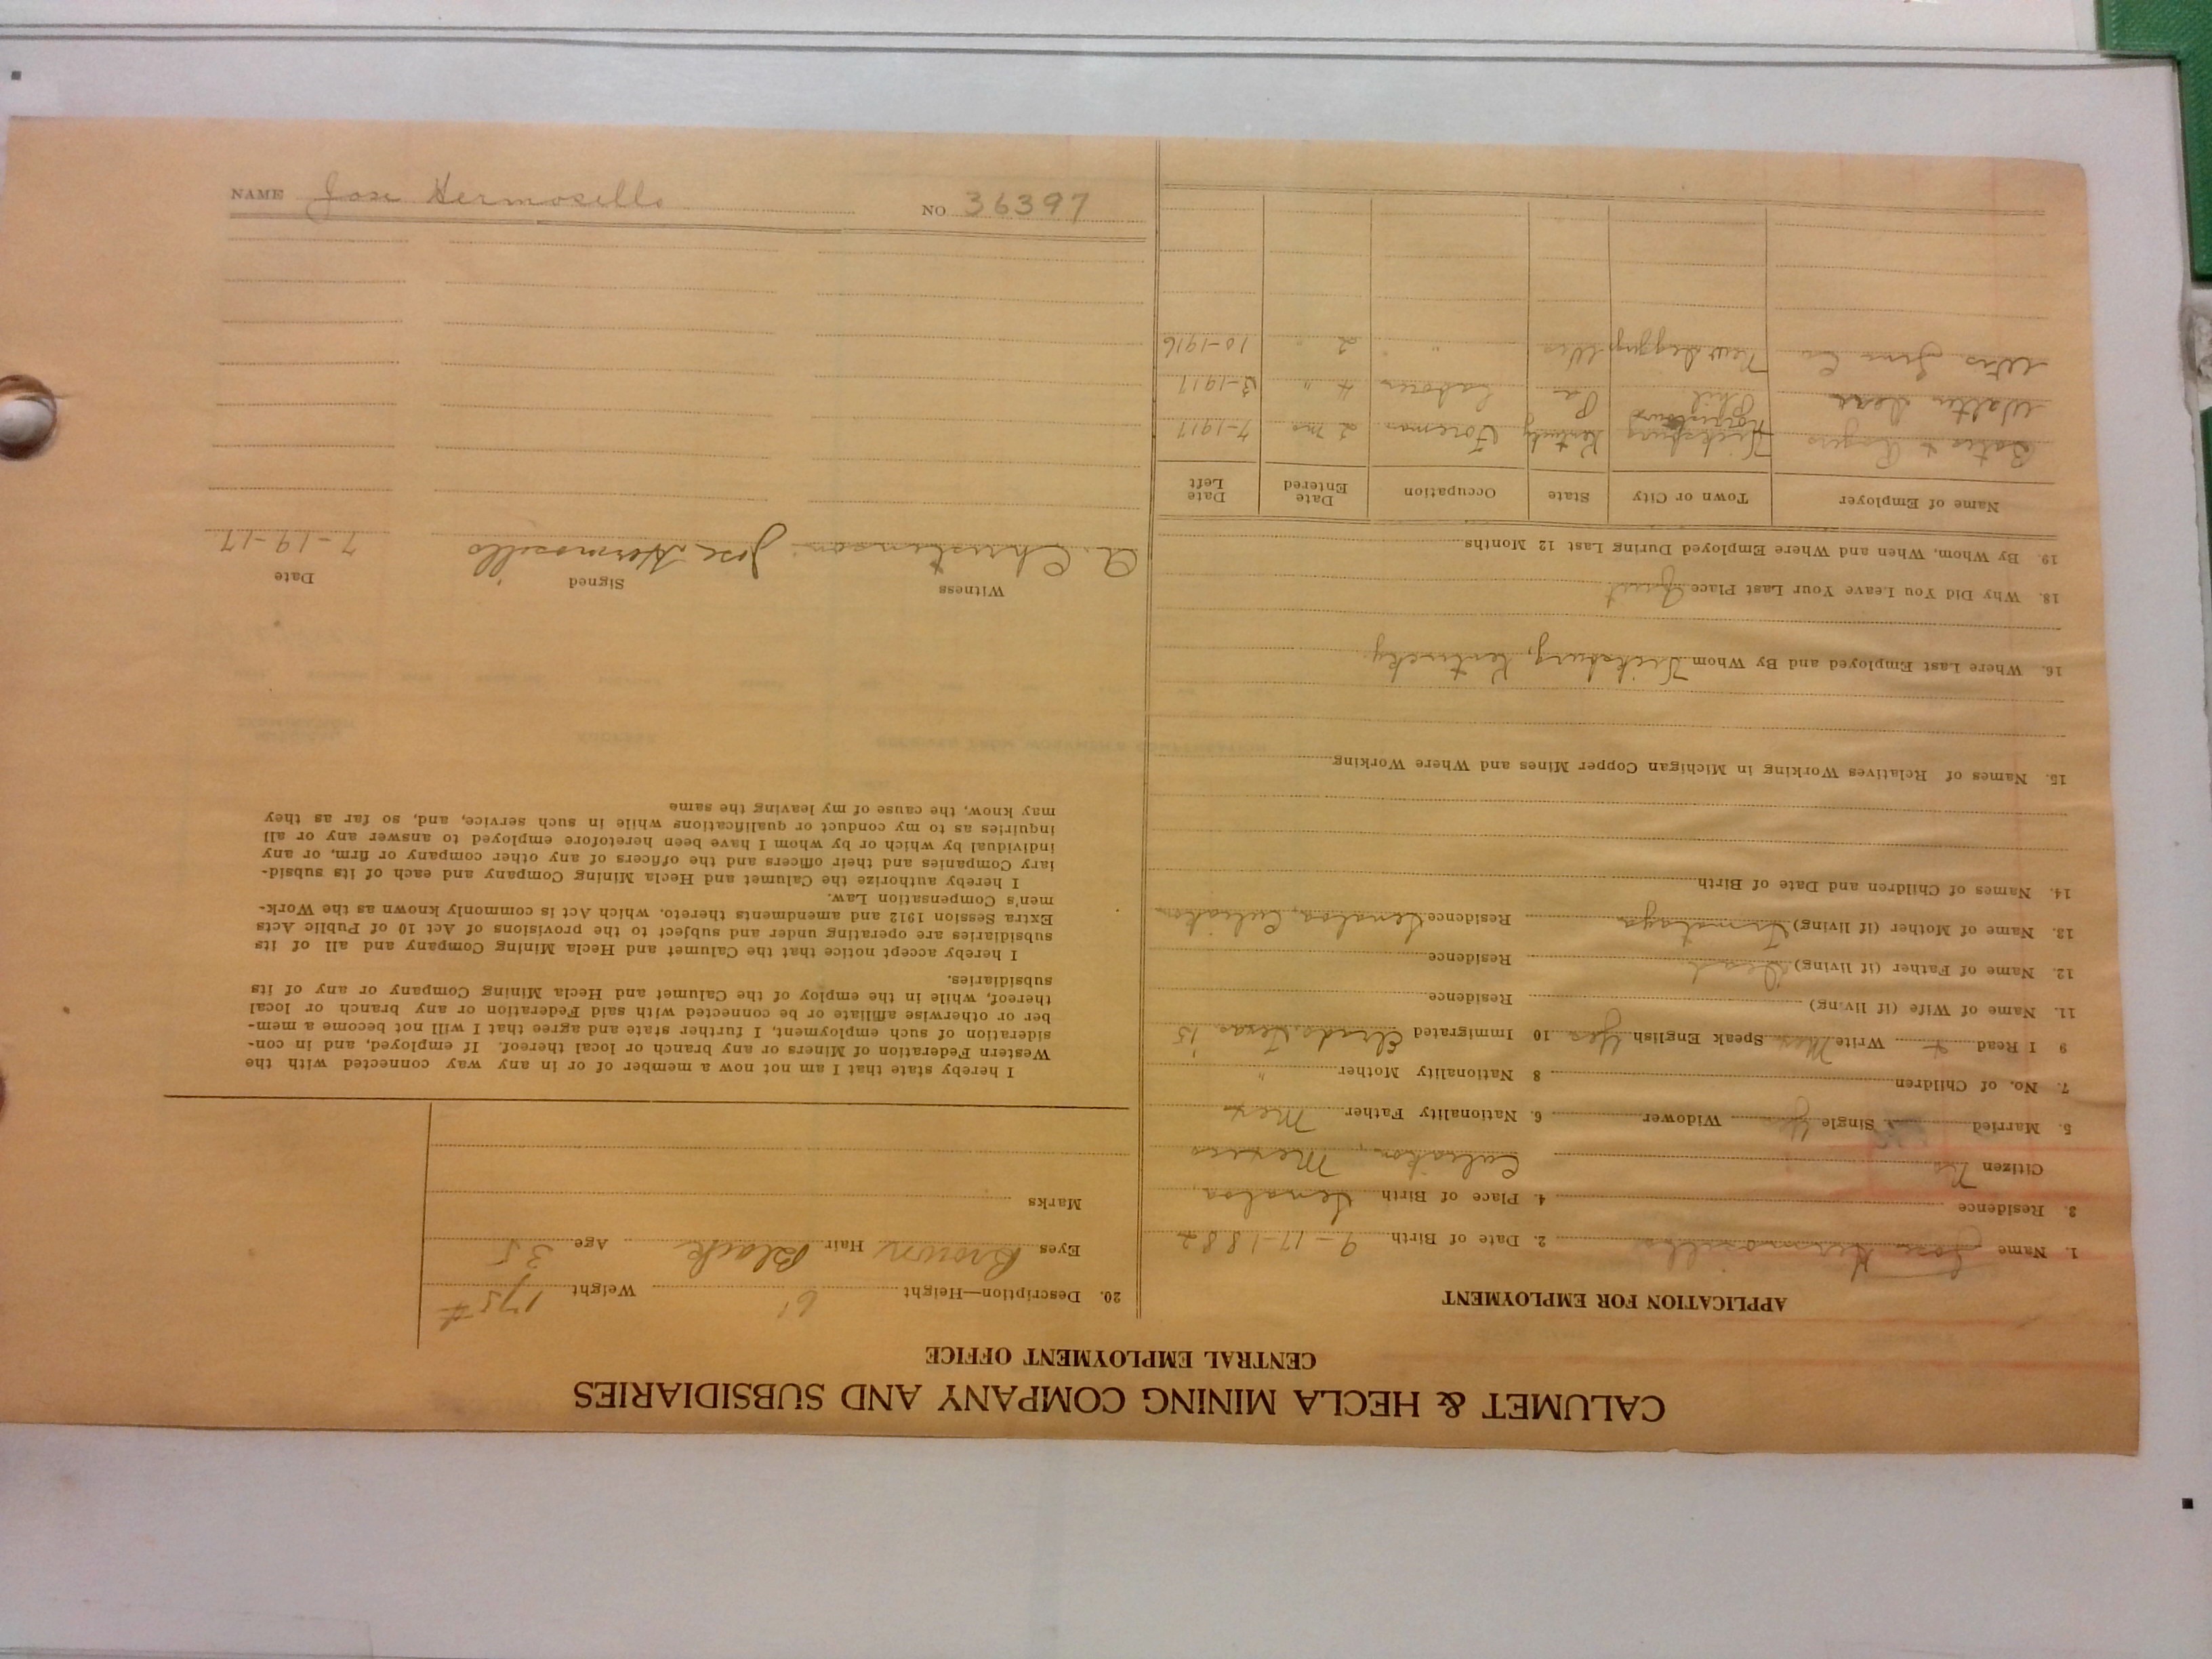 CALUMET & HECLA MINING COMPANY AND SUBSIDIARIES
CENTRAL EMPLOYMENT OFFICE
APPLICATION FOR EMPLOYMENT
1. Name Jose Hermosillo 2. Date of Birth 9-17-1882
3. Residence 4. Place of Birth Senaloa,
Citizen No Culiakon, Mexico
5. Married Single Yes Widower 6. Nationality Father Mex
7. No. of Children 8 Nationality Mother "
9 I Read + Write Mex Speak English Yes 10 Immigrated Texas 15
11. Name of Wife (if living) Residence
12. Name of Father (if living) Dead Residence
13. Name of Mother (if living) Residence Senaloa, Culiakon
14. Names of Children and Date of Birth
15. Names of Relatives Working in Michigan Copper Mines and Where Working
16. Where Last Employed and By Whom Kentucky.
18. Why Did You Leave Your Last Place Quit
19. By Whom, When and Where Employed During Last 12 Months
Name of Employer Town or City State Occupation Date Entered Date Left
Bates & Rogers Kentucky Foreman 2 mo 7-1917
Walter Phil Pa Laborer 4 " 3-1917
Wis Co New Wis " 2 " 10-1916
20. Description—Height 6' Weight 175#
Eyes Brown Hair Black Age 35
Marks
I hereby state that I am not now a member of or in any way connected with the
Western Federation of Miners or any branch or local thereof. If employed, and in con-
sideration of such employment, I further state and agree that I will not become a mem-
ber or otherwise affiliate or be connected with said Federation or any branch or local
thereof, while in the employ of the Calumet and Hecla Mining Company or any of its
subsidiaries.
I hereby accept notice that the Calumet and Hecla Mining Company and all of its
subsidiaries are operating under and subject to the provisions of Act 10 of Public Acts
Extra Session 1912 and amendments thereto, which Act is commonly known as the Work-
men's Compensation Law.
I hereby authorize the Calumet and Hecla Mining Company and each of its subsid-
iary Companies and their officers and the officers of any other company or firm, or any
individual by which or by whom I have been heretofore employed to answer any or all
inquiries as to my conduct or qualifications while in such service, and, so far as they
may know, the cause of my leaving the same
Witness Signed Date
A. Christenson Jose Hermosillo 7-19-17
NAME Jose Hermosello NO 36397